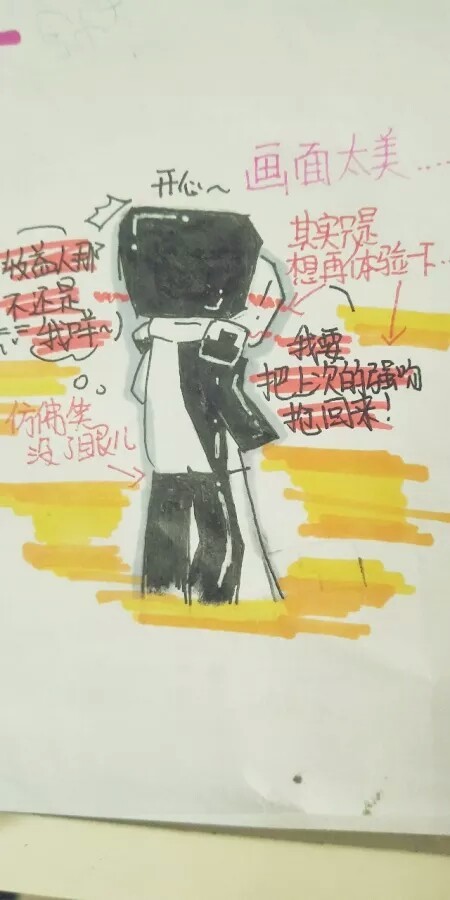 开心~
画面太美....
其实只是
想再体验下...
收益人那
不还是
我咩~
我要
把上次的强吻
抢回来!
仿佛笑
没了眼儿